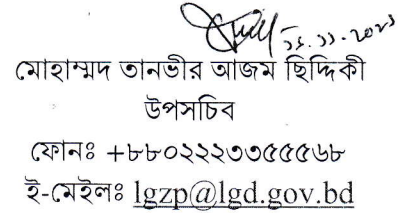 ২৬.১১.২০২৩
মোহাম্মদ তানভীর আজম ছিদ্দিকী
উপসচিব
ফোনঃ +৮৮০২২২৩৩৫৫৫৬৮
ই-মেইলঃ lgzp@lgd.gov.bd